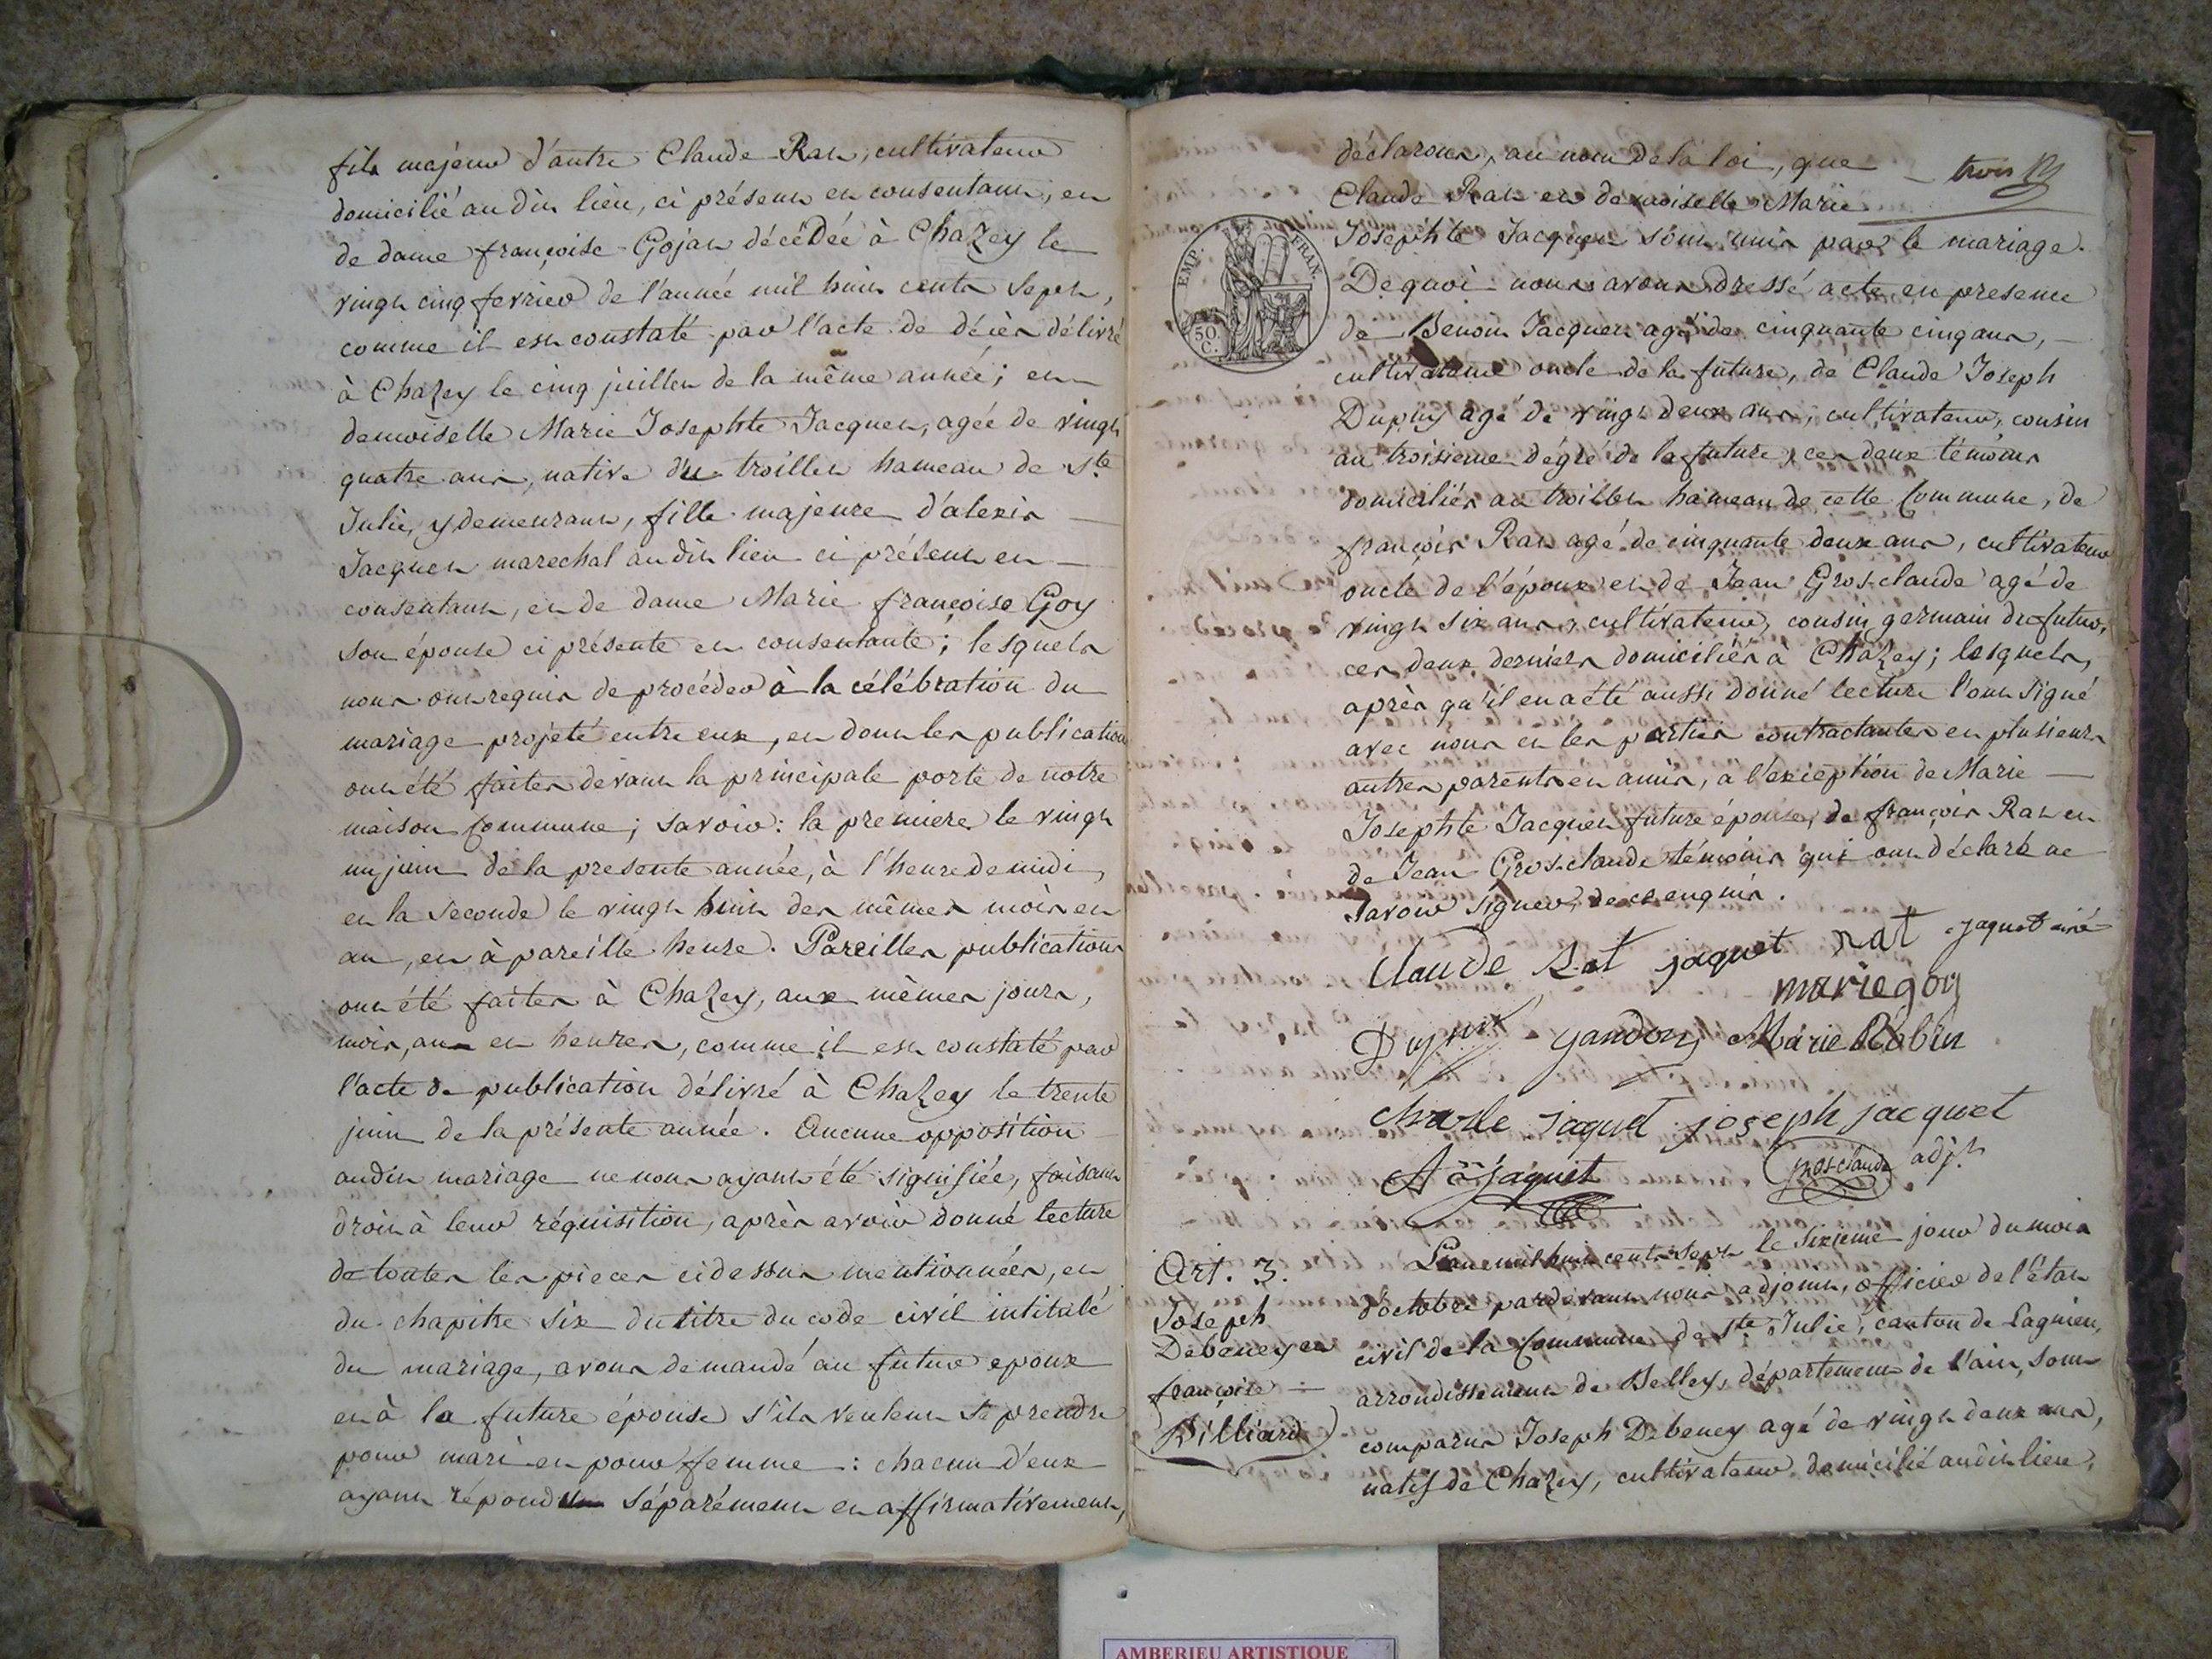 fils majeur d'autre Claude Rat, cultivateur
domicilié au dit lieu, ci présent et consentant, et
de dame françoise Gojat décédée à Chazey le
vingt cinq fevrier de l'année mil huit cents sept,
comme il est constaté par l'acte de décès délivré
à Chazey le cinq juillet de la même année; et
demoiselle Marie Josephte Jacquet, agée de vingt
quatre ans, native du troillet hameau de Ste.
Julie, y demeurant, fille majeure d'alexis
Jacquet marechal au dit lieu ci présent et
consentant, et de dame Marie françoise Goy
son épouse ci présente et consentante; lesquels
nous ont requis de procéder à la célébration du
mariage projeté entre eux, et dont les publications
ont été faites devant la principale porte de notre
maison Commune; savoir: la premiere le vingt
un juin de la presente année, à l'heure de midi,
et la seconde le vingt huit des mêmes mois et
an, et à pareille heure. Pareilles publications
ont été faites à Chazey, aux mêmes jours,
mois, an et heures, comme il est constaté par
l'acte de publication délivré à Chazey le trente
juin de la présente année. Aucune opposition
audit mariage ne nous ayant été signifiée, faisant
droit à leur réquisition, après avoir donné lecture
de toutes les pieces cidessus mentionnées, et
du chapitre six du titre du code civil intitulé
du mariage, avons demandé au futur epoux
et à la future épouse s'ils veulent se prendre
pour mari et pour femme: chacun d'eux
ayant répondu séparément et affirmativement,
déclarons, au nom de la loi, que
trois
Claude Rat et demoiselle Marie
Josephte Jacquet sont unis par le mariage.
De quoi nous avons dressé acte en presence
de Benoit Jacquet agé de cinquante cinq ans,
cultivateur oncle de la future, de Claude Joseph
Dupuy agé de vingt deux ans, cultivateur, cousin
au troisieme dégré de la future, ces deux témoins
domiciliés au troillet hameau de cette Commune, de
françois Rat agé de cinquante deux ans, cultivateur
oncle de l'époux et de Jean Gros-claude agé de
vingt six ans, cultivateur, cousin germain du futur,
ces deux derniers domiciliés à Chazey; lesquels,
après qu'il en a été aussi donné lecture l'ont signé
avec nous et les parties contractantes et plusieurs
autres parents et amis, a l'exception de Marie
Josephte Jacquet future épouse, de françois Rat et
de Jean Gros-claude témoins qui ont déclaré ne
savoir signer, de ce enquis.
Claude Rat jaquet rat jaquet ainé
marie goy
Dupuy gandon Marie Robin
charle jaquet joseph jacquet
jaquet
Grosclaude adjt.
Art. 3.
Joseph
Debeney et
françoise
Billiard
L'an mil huit cents sept le sixieme jour du mois
d'octobre pardevant nous adjoint, officier de l'état
civil de la Commune de Ste. Julie, canton de Lagnieu,
arrondissement de Belley, département de l'ain, sont
comparus Joseph Debeney agé de vingt deux ans,
natif de Chazey, cultivateur domicilié audit lieu,
EMP. FRAN.
50
C.
AMBERIEU ARTISTIQUE